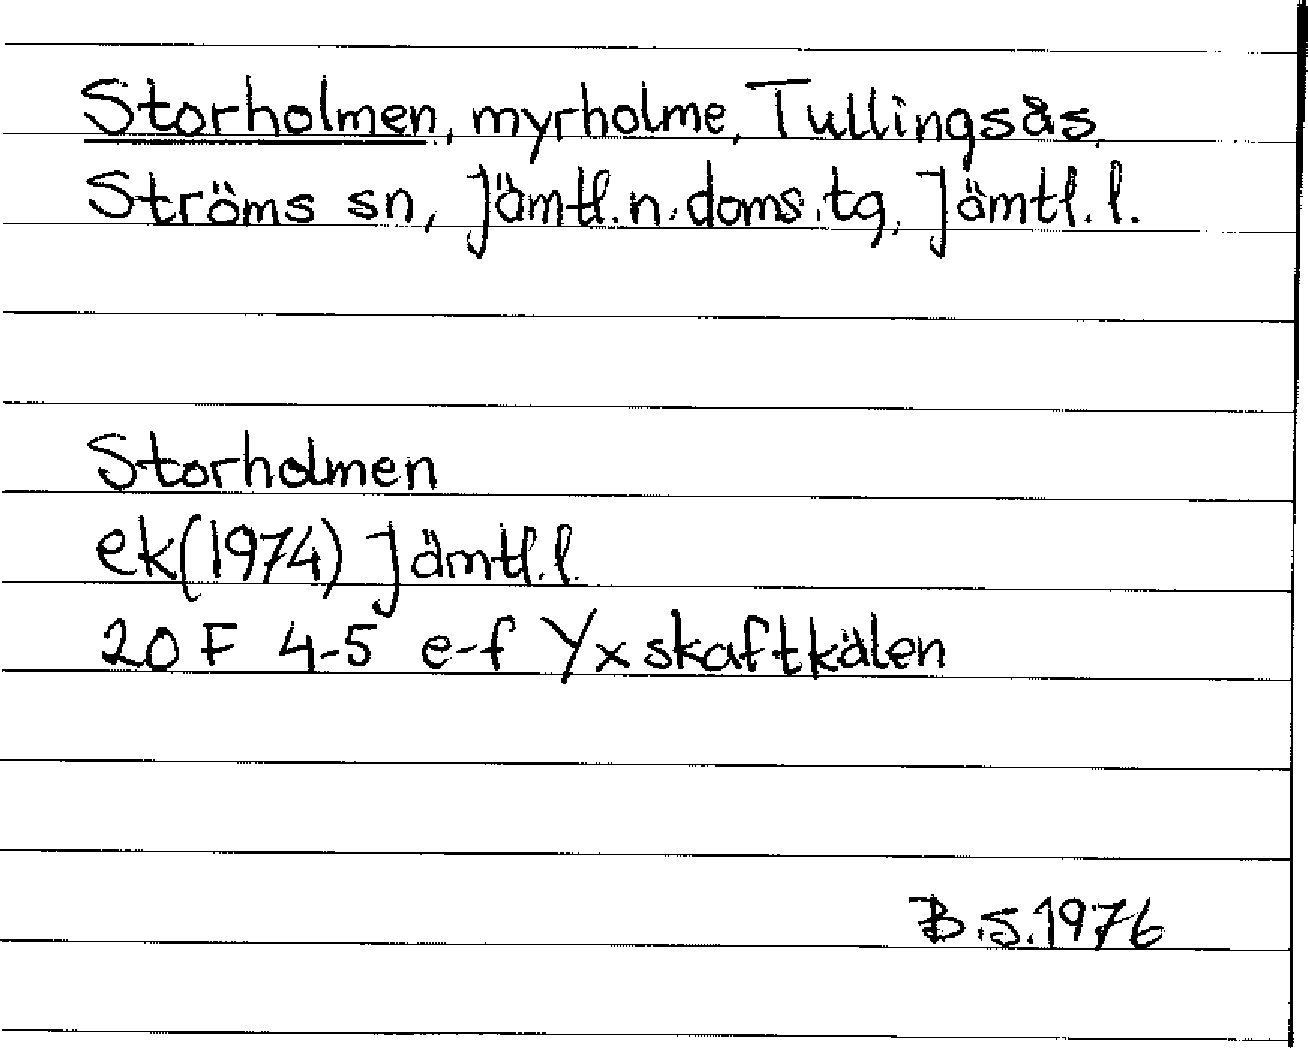 Storholmen, myrholme, Tullingsås,
Ströms sn, Jämtl. n. doms. tg, Jämtl. l.
Storholmen
ek (1974) Jämtl. l.
20 F 4-5 e-f Yxskaftkälen
B.S. 1976